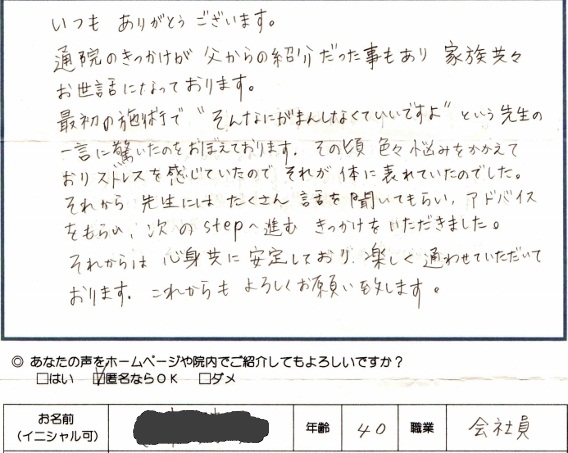 いつも ありがとう ございます。
通院のきっかけが 父からの紹介だった事もあり 家族共々
お世話になっております。
最初の施術で "そんなにがまんしなくていいですよ" という先生の
一言に驚いたのをおぼえております. その頃 色々悩みをかかえて
おりストレスを感じていたので それが体に表れていたのでした。
それから 先生には たくさん 話を聞いてもらい, アドバイス
をもらい, 次の stepへ進む きっかけをいただきました。
それからは 心身共に 安定しており 楽しく 通わせていただいて
おります. これからも よろしくお願い致します。
◎ あなたの声をホームページや院内でご紹介してもよろしいですか？
□はい ☑匿名ならOK □ダメ
お名前
(イニシャル可)
年齢
40
職業
会社員